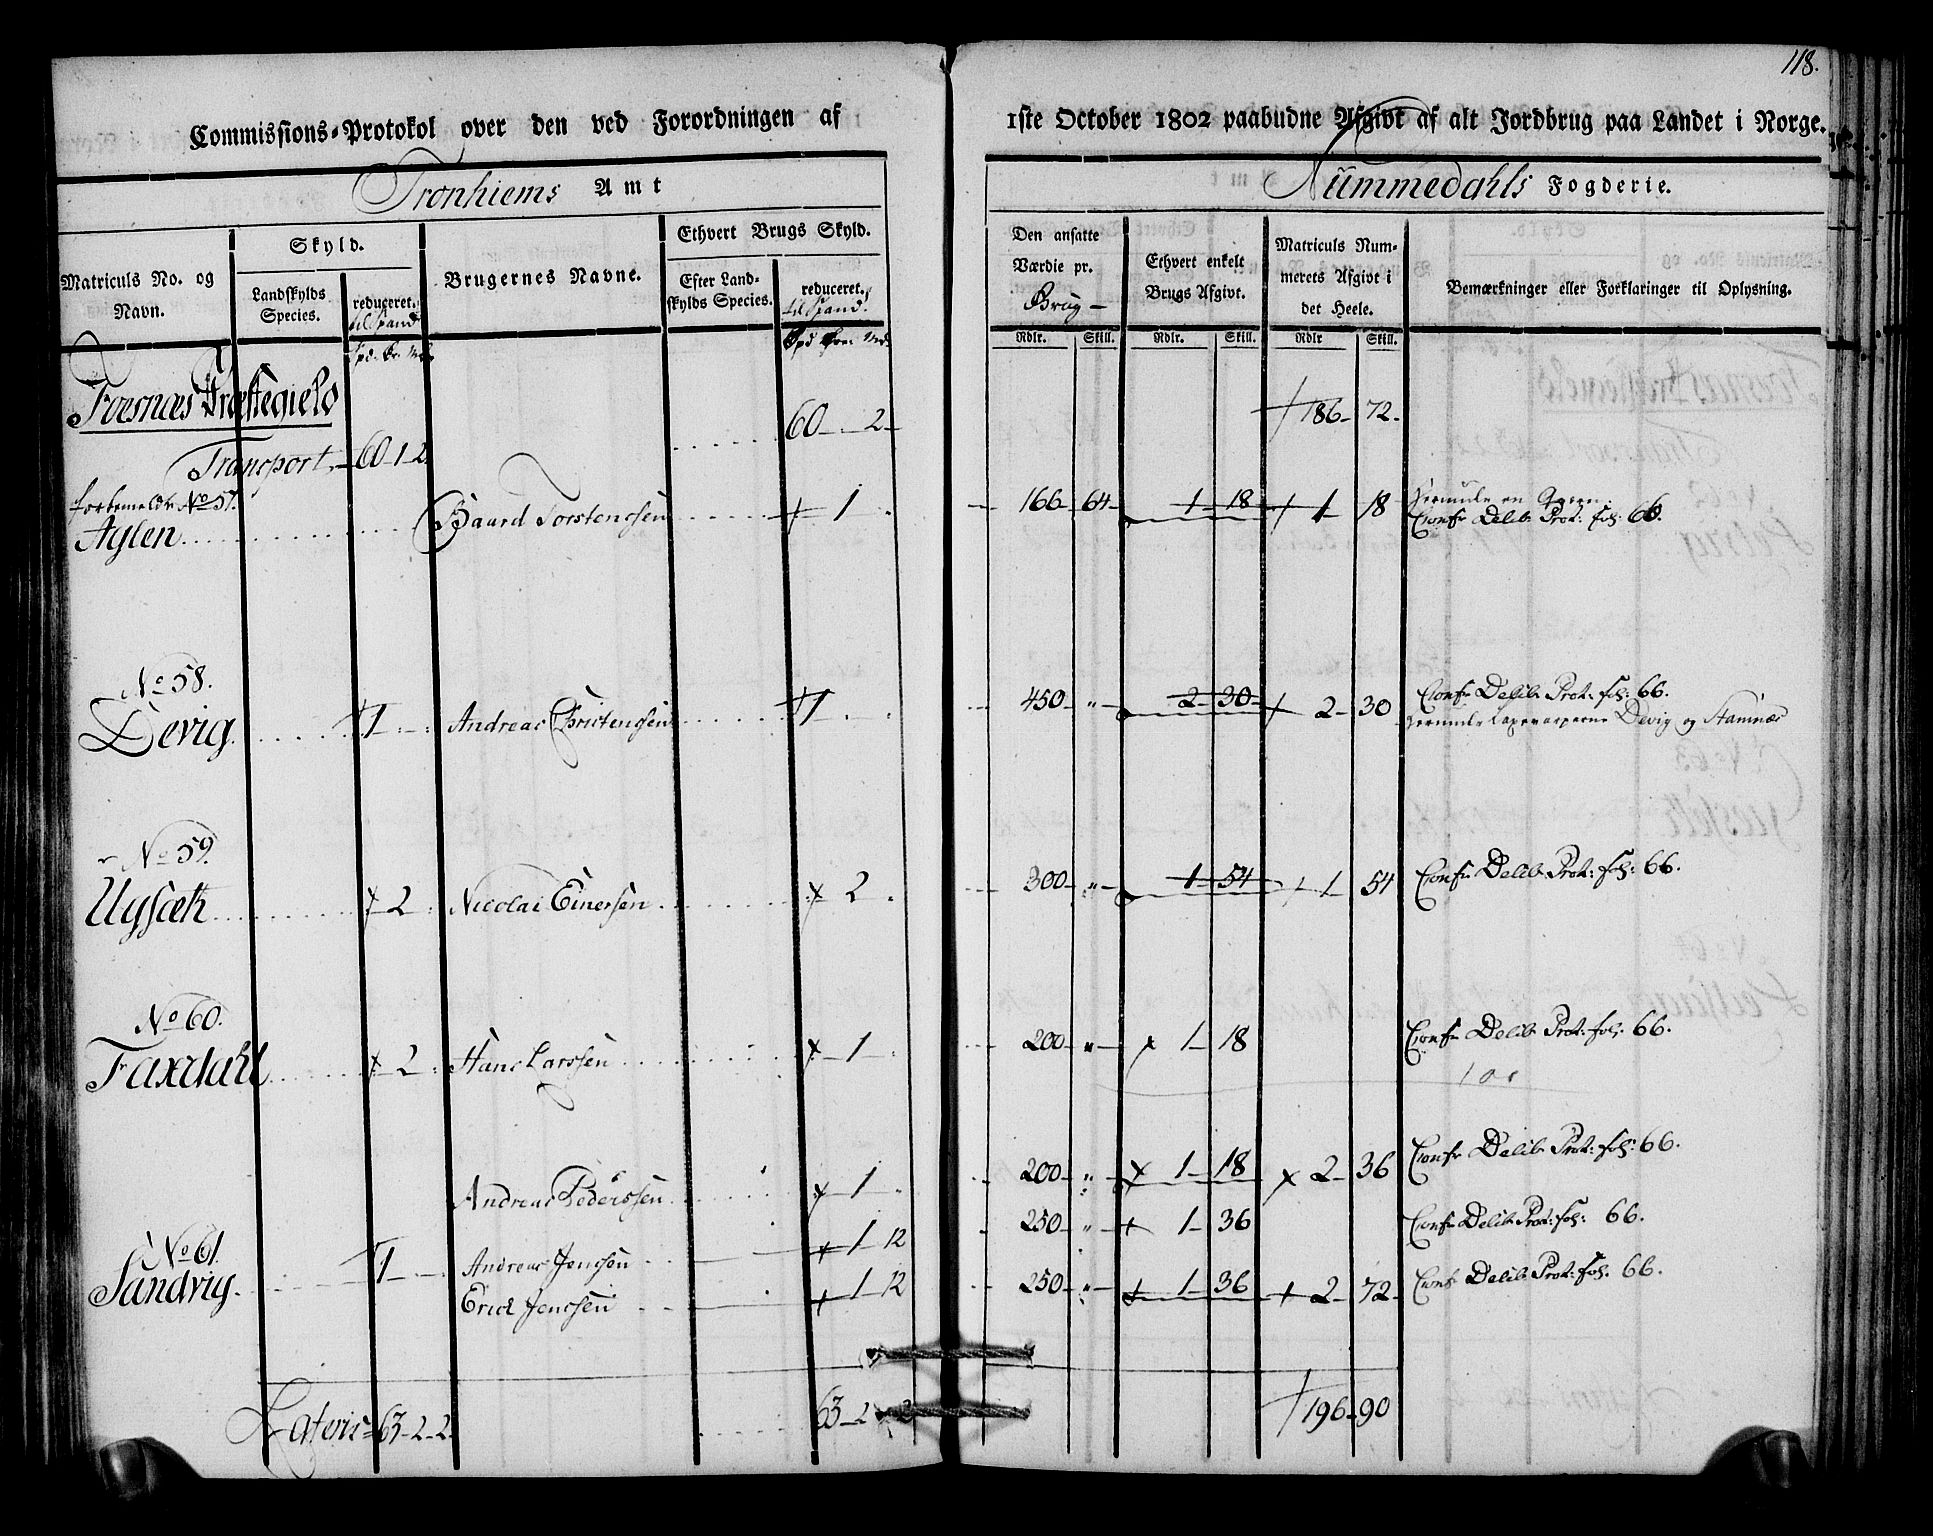 118.
Commissions-Protokol over den ved Forordningen af 1ste October 1802 paabudne Afgivt af alt Jordbrug paa Landet i Norge.
Tronhiems Amt Nummedahls Fogderie.
Matriculs No. og Navn. Skyld. Brugernes Navne. Ethvert Brugs Skyld. Den ansatte Værdie pr. Brug Ethvert enkelt Brugs Afgivt. Matriculs Nummerets Afgivt i det Heele. Bemærkninger eller Forklaringer til Oplysning.
Landskylds Species. reduceret. til Spand Efter Landskylds Species. reduceret. til Spand.
Rdlr. Skill. Rdlr. Skill. Rdlr Skill.
Foesnæs Præstegield
60 - 2 186 72
Transport 60 1 2
No 57.
Aglen Baard Torstensen 1 166 64 1 18 1 18 Confr Delib: Prot: fol: 66.
No 58.
Devig 1 Andreas Christensen 1 450 " 2 30 2 30 Confr Delib: Prot: fol: 66.
Devig og Stamnæs
No 59.
2 Nicolai Einersen 2 300 " 1 54 1 54 Confr Delib: Prot: fol: 66.
No 60.
Faxdahl 2 Hans Larssen 1 200 " 1 18 Confr Delib: Prot: fol: 66.
Andreas Pederssen 1 200 " 1 18 2 36 Confr Delib: Prot: fol: 66.
No 61.
Sandvig 1 Andreas Jenssen 1 12 250 " 1 36 Confr Delib: Prot: fol: 66.
Erick Jenssen 1 12 250 " 1 36 2 72 Confr Delib: Prot: fol. 66.
Lateris 63 2 2 63 2 196 90